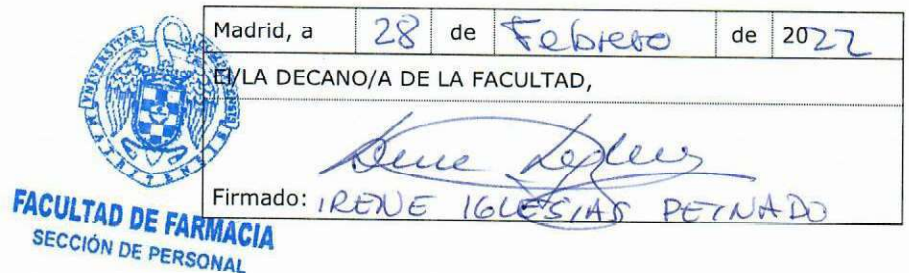 Madrid, a 28 de Febrero de 2022
El/LA DECANO/A DE LA FACULTAD,
Irene Iglesias
Firmado: IRENE IGLESIAS PEINADO
FACULTAD DE FARMACIA
SECCIÓN DE PERSONAL